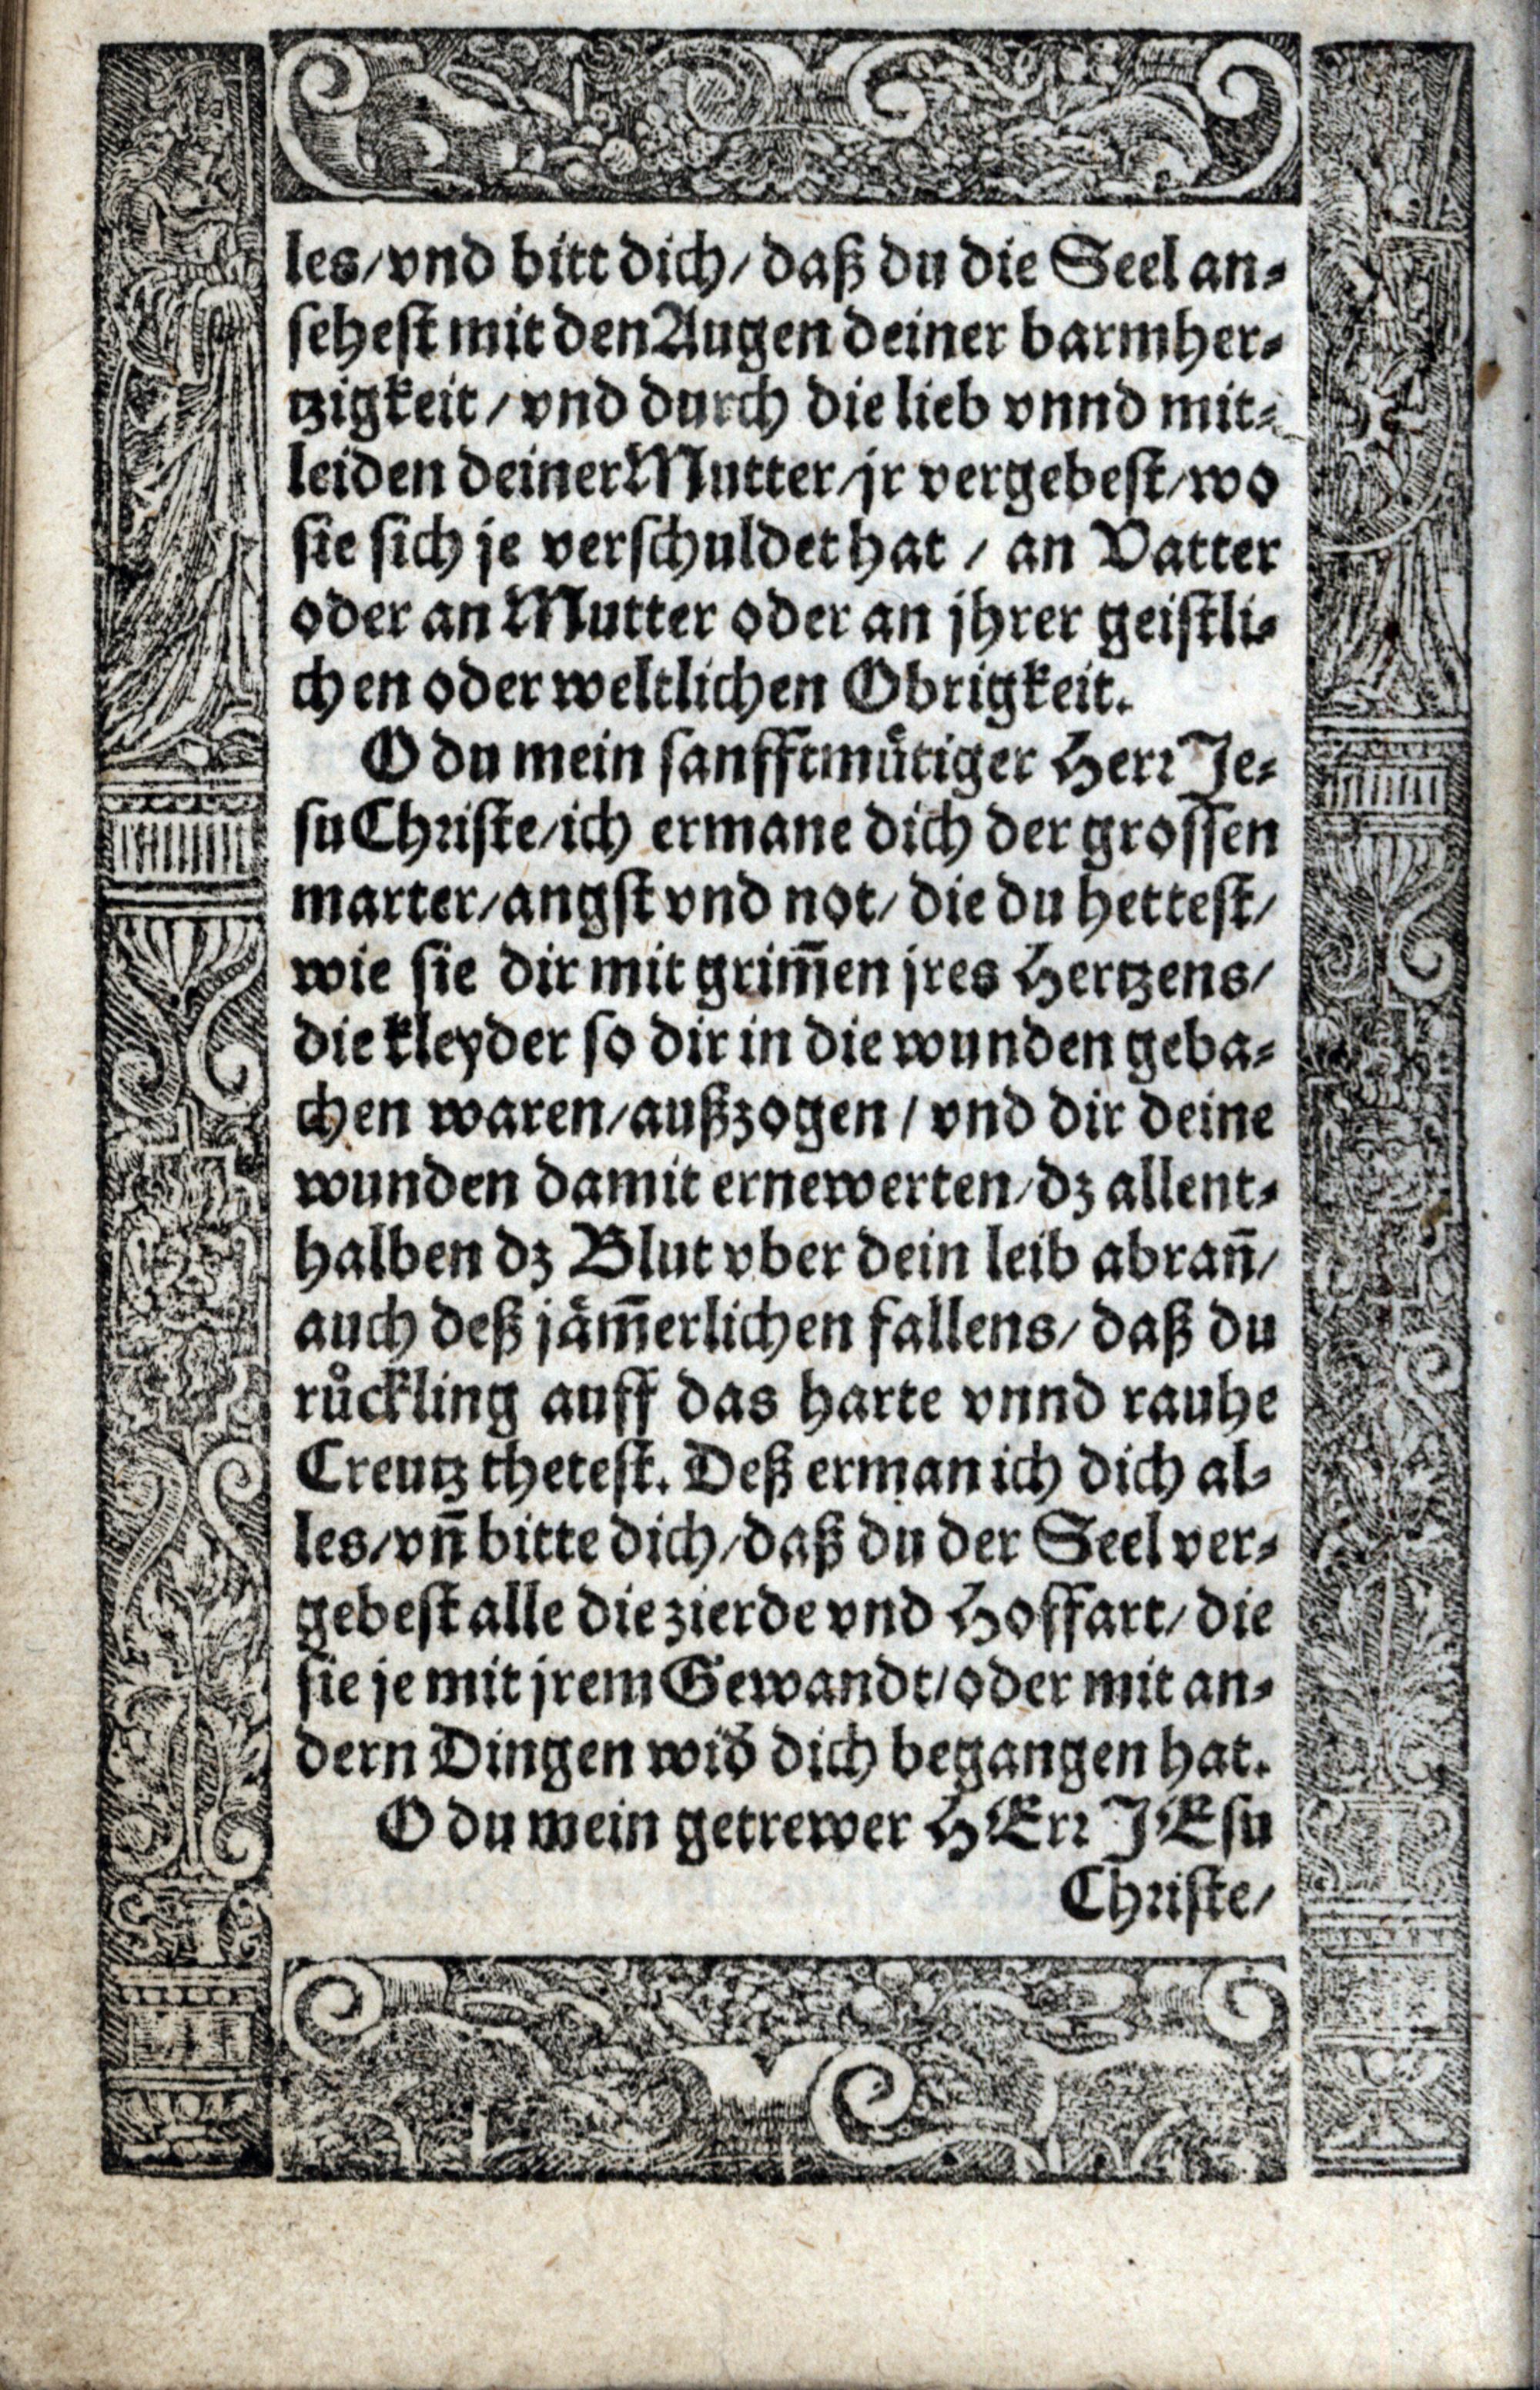 les/vnd bitt dich/daß du die Seel an⸗
sehest mit den Augen deiner barmher⸗
tzigkeit/vnd durch die lieb vnnd mit⸗
leiden deiner Mutter/jr vergebest/wo
sie sich je verschuldet hat/an Vatter
oder an Mutter oder an jhrer geistli⸗
chen oder weltlichen Obrigkeit.
O du mein sanfftmuͤtiger Herr Je⸗
su Christe/ich ermane dich der grossen
marter/angst vnd not/die du hettest/
wie sie dir mit grim̄en jres Hertzens/
die kleyder so dir in die wunden geba⸗
chen waren/außzogen/vnd dir deine
wunden damit ernewerten/dz allent⸗
halben dz Blut vber dein leib abran̄/
auch deß jaͤm̄erlichen fallens/daß du
ruͦckling auff das harte vnnd rauhe
Creutz thetest. Deß erman ich dich al⸗
les/vn̄ bitte dich/daß du der Seel ver⸗
gebest alle die zierde vnd Hoffart/die
sie je mit jrem Gewandt/oder mit an⸗
dern Dingen wid̄ dich begangen hat.
O du mein getrewer HErr JEsu
Christe/